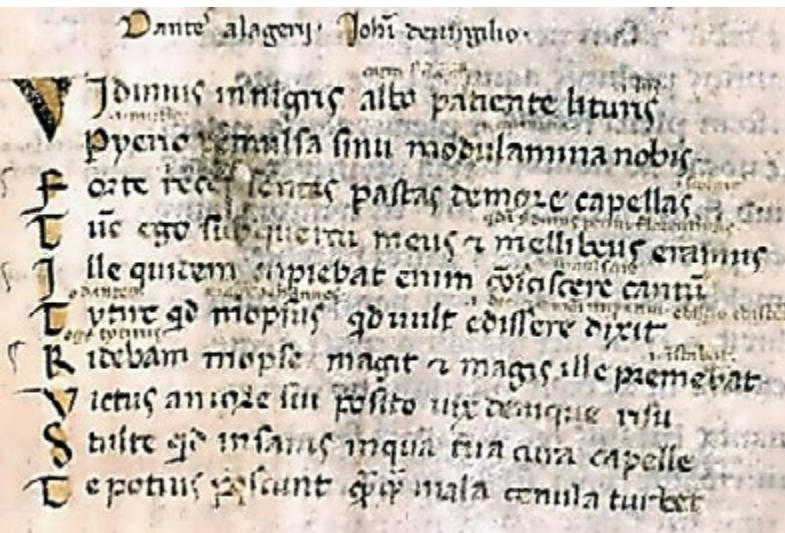 Dantes alagerij. Johi de virgilio.
Vidimus in nigris albo patiente lituris
Pyerio demulsa sinu modulamina nobis
Forte recensentes pastas de more capellas
Tuc ego sub quercu meus et mellibeus eramus
Ille quidem cupiebat enim coniscere cantu
Tytire qd mopsus qd vult edissere dixit
Ridebam mopse magis et magis ille premebat
Victus amore sui posito vix denique risu
Stulte qd insanis inqua tua cura capelle
Te potius poscunt qq mala cenula turbet